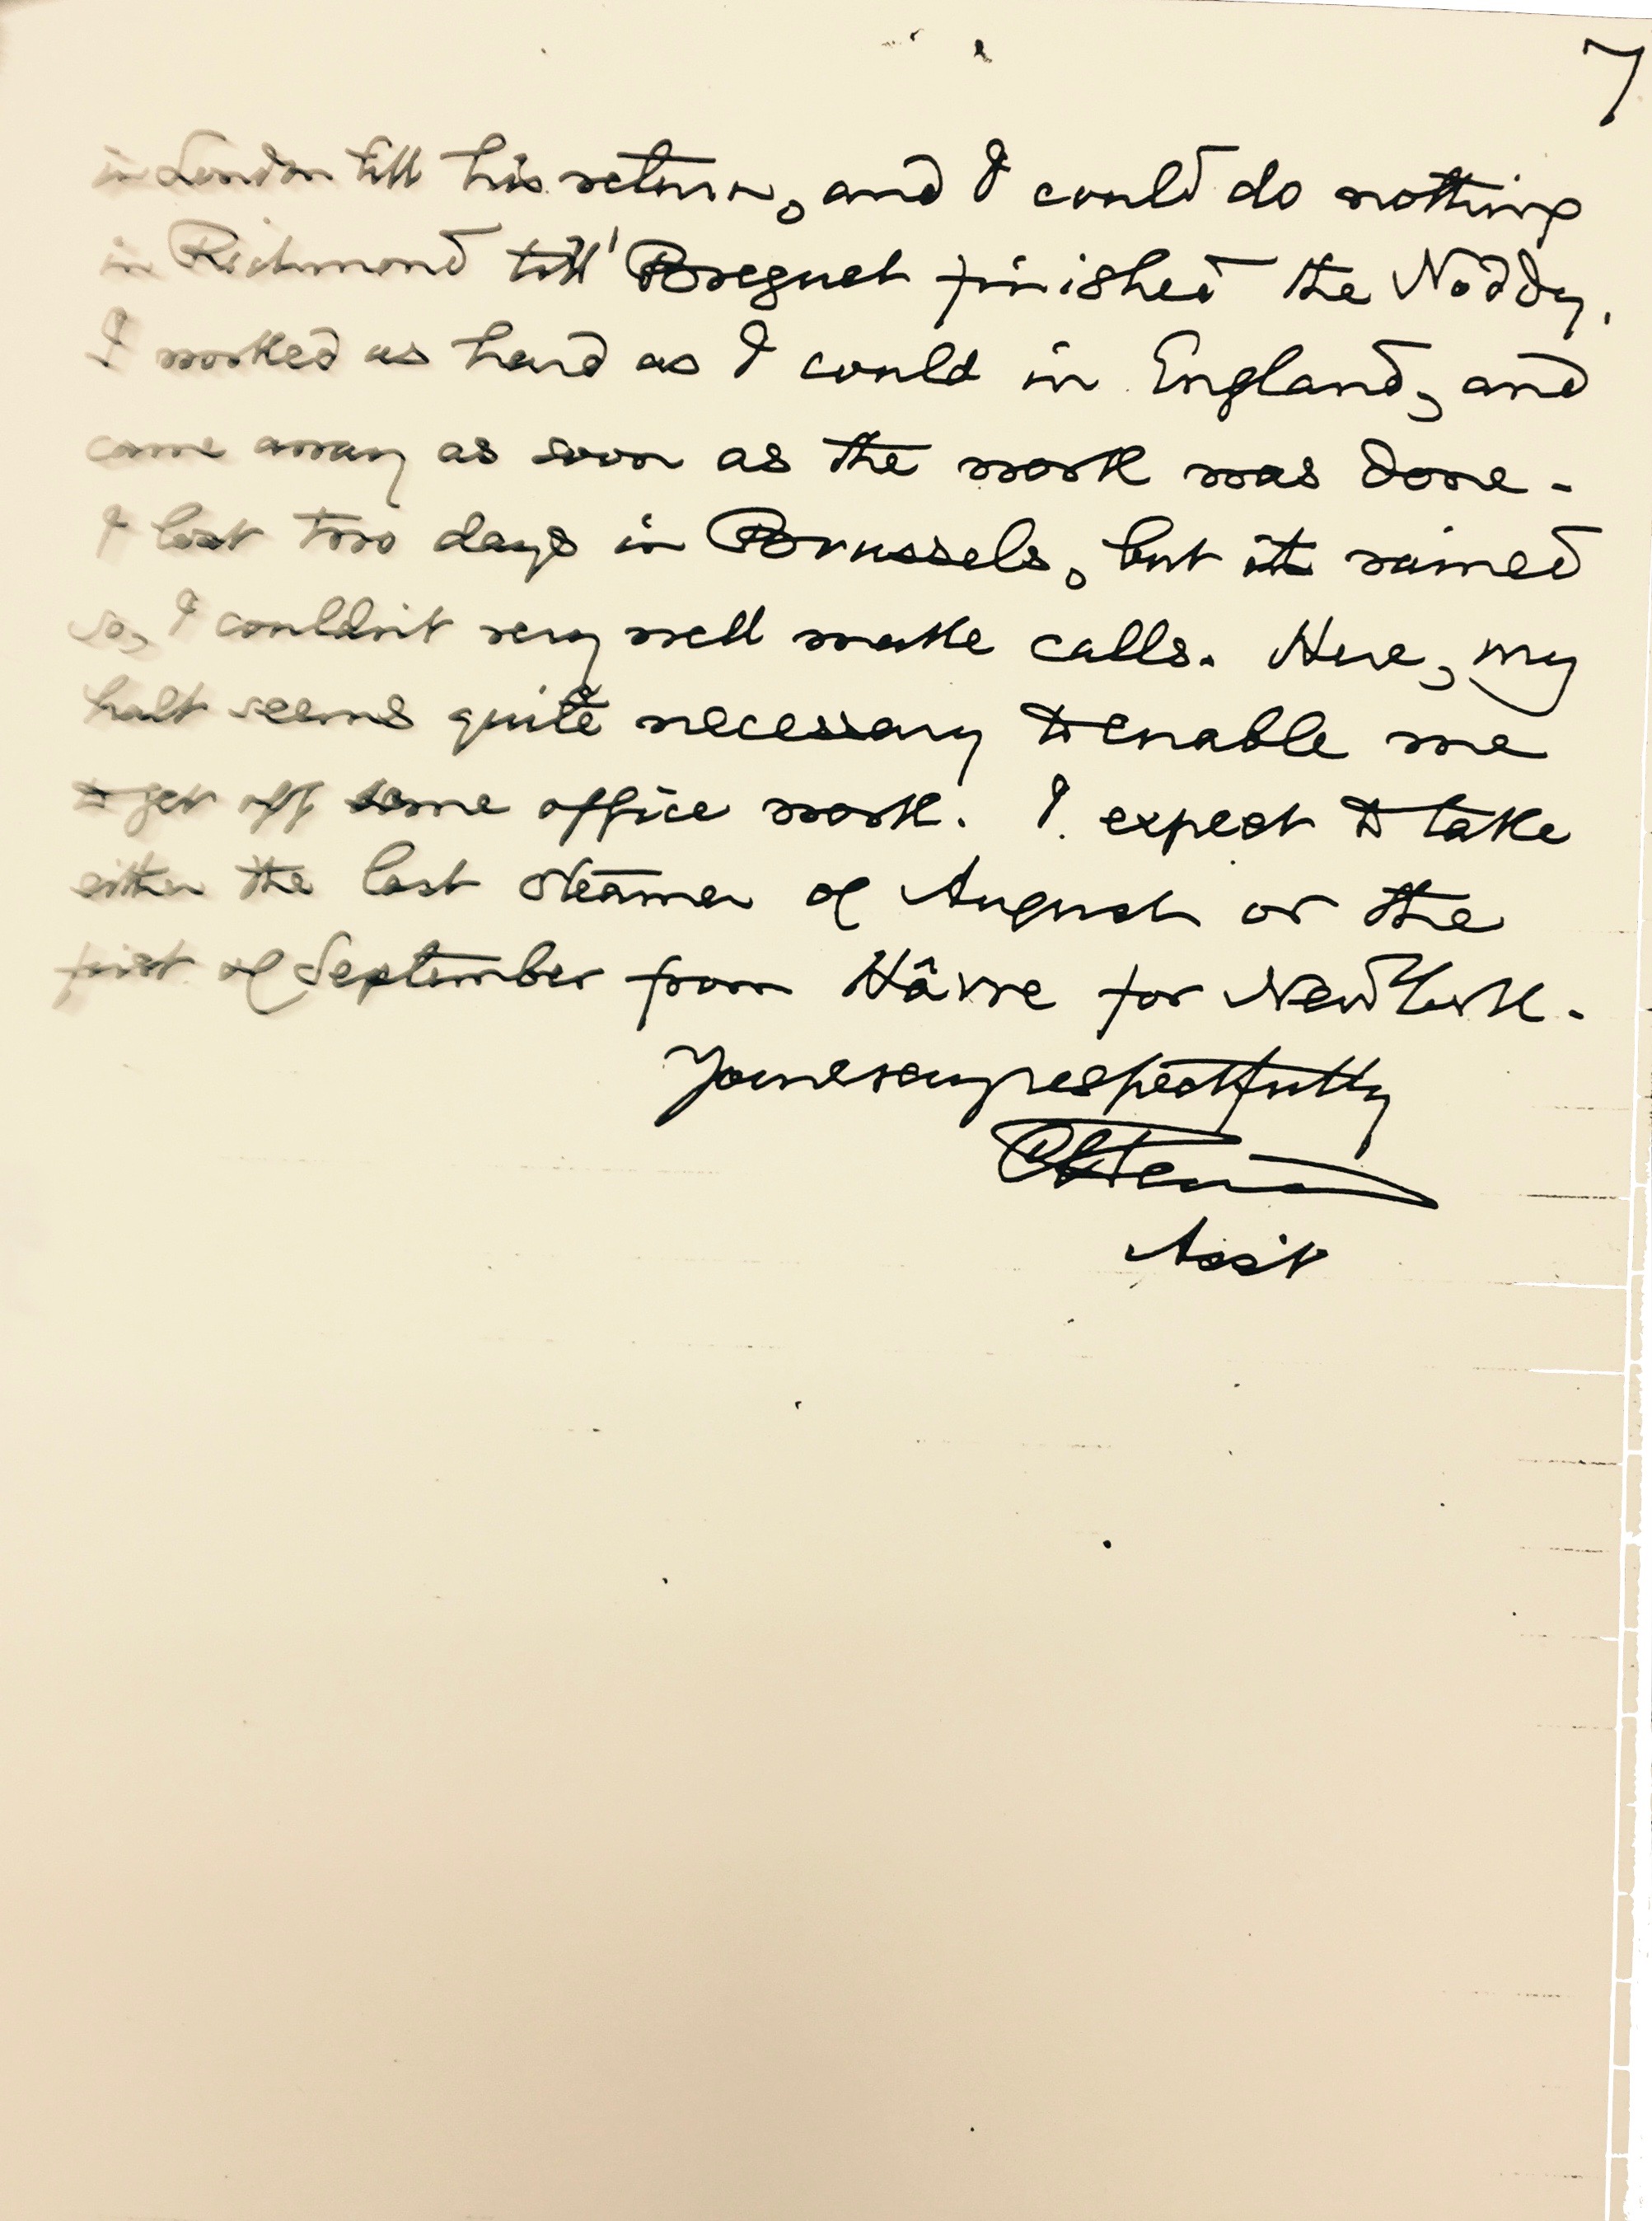 7
in London till his return, and I could do nothing
in Richmond till Breguet finished the Noddy.
I worked as hard as I could in England, and
came away as soon as the work was done.
I lost two days in Brussels, but it rained
so, I couldn't very well make calls. Here, my
halt seems quite necessary to enable me
to get off some office work. I expect to take
either the last steamer of August or the
first of September from Hâvre for New York.
Yours very respectfully
Ass't